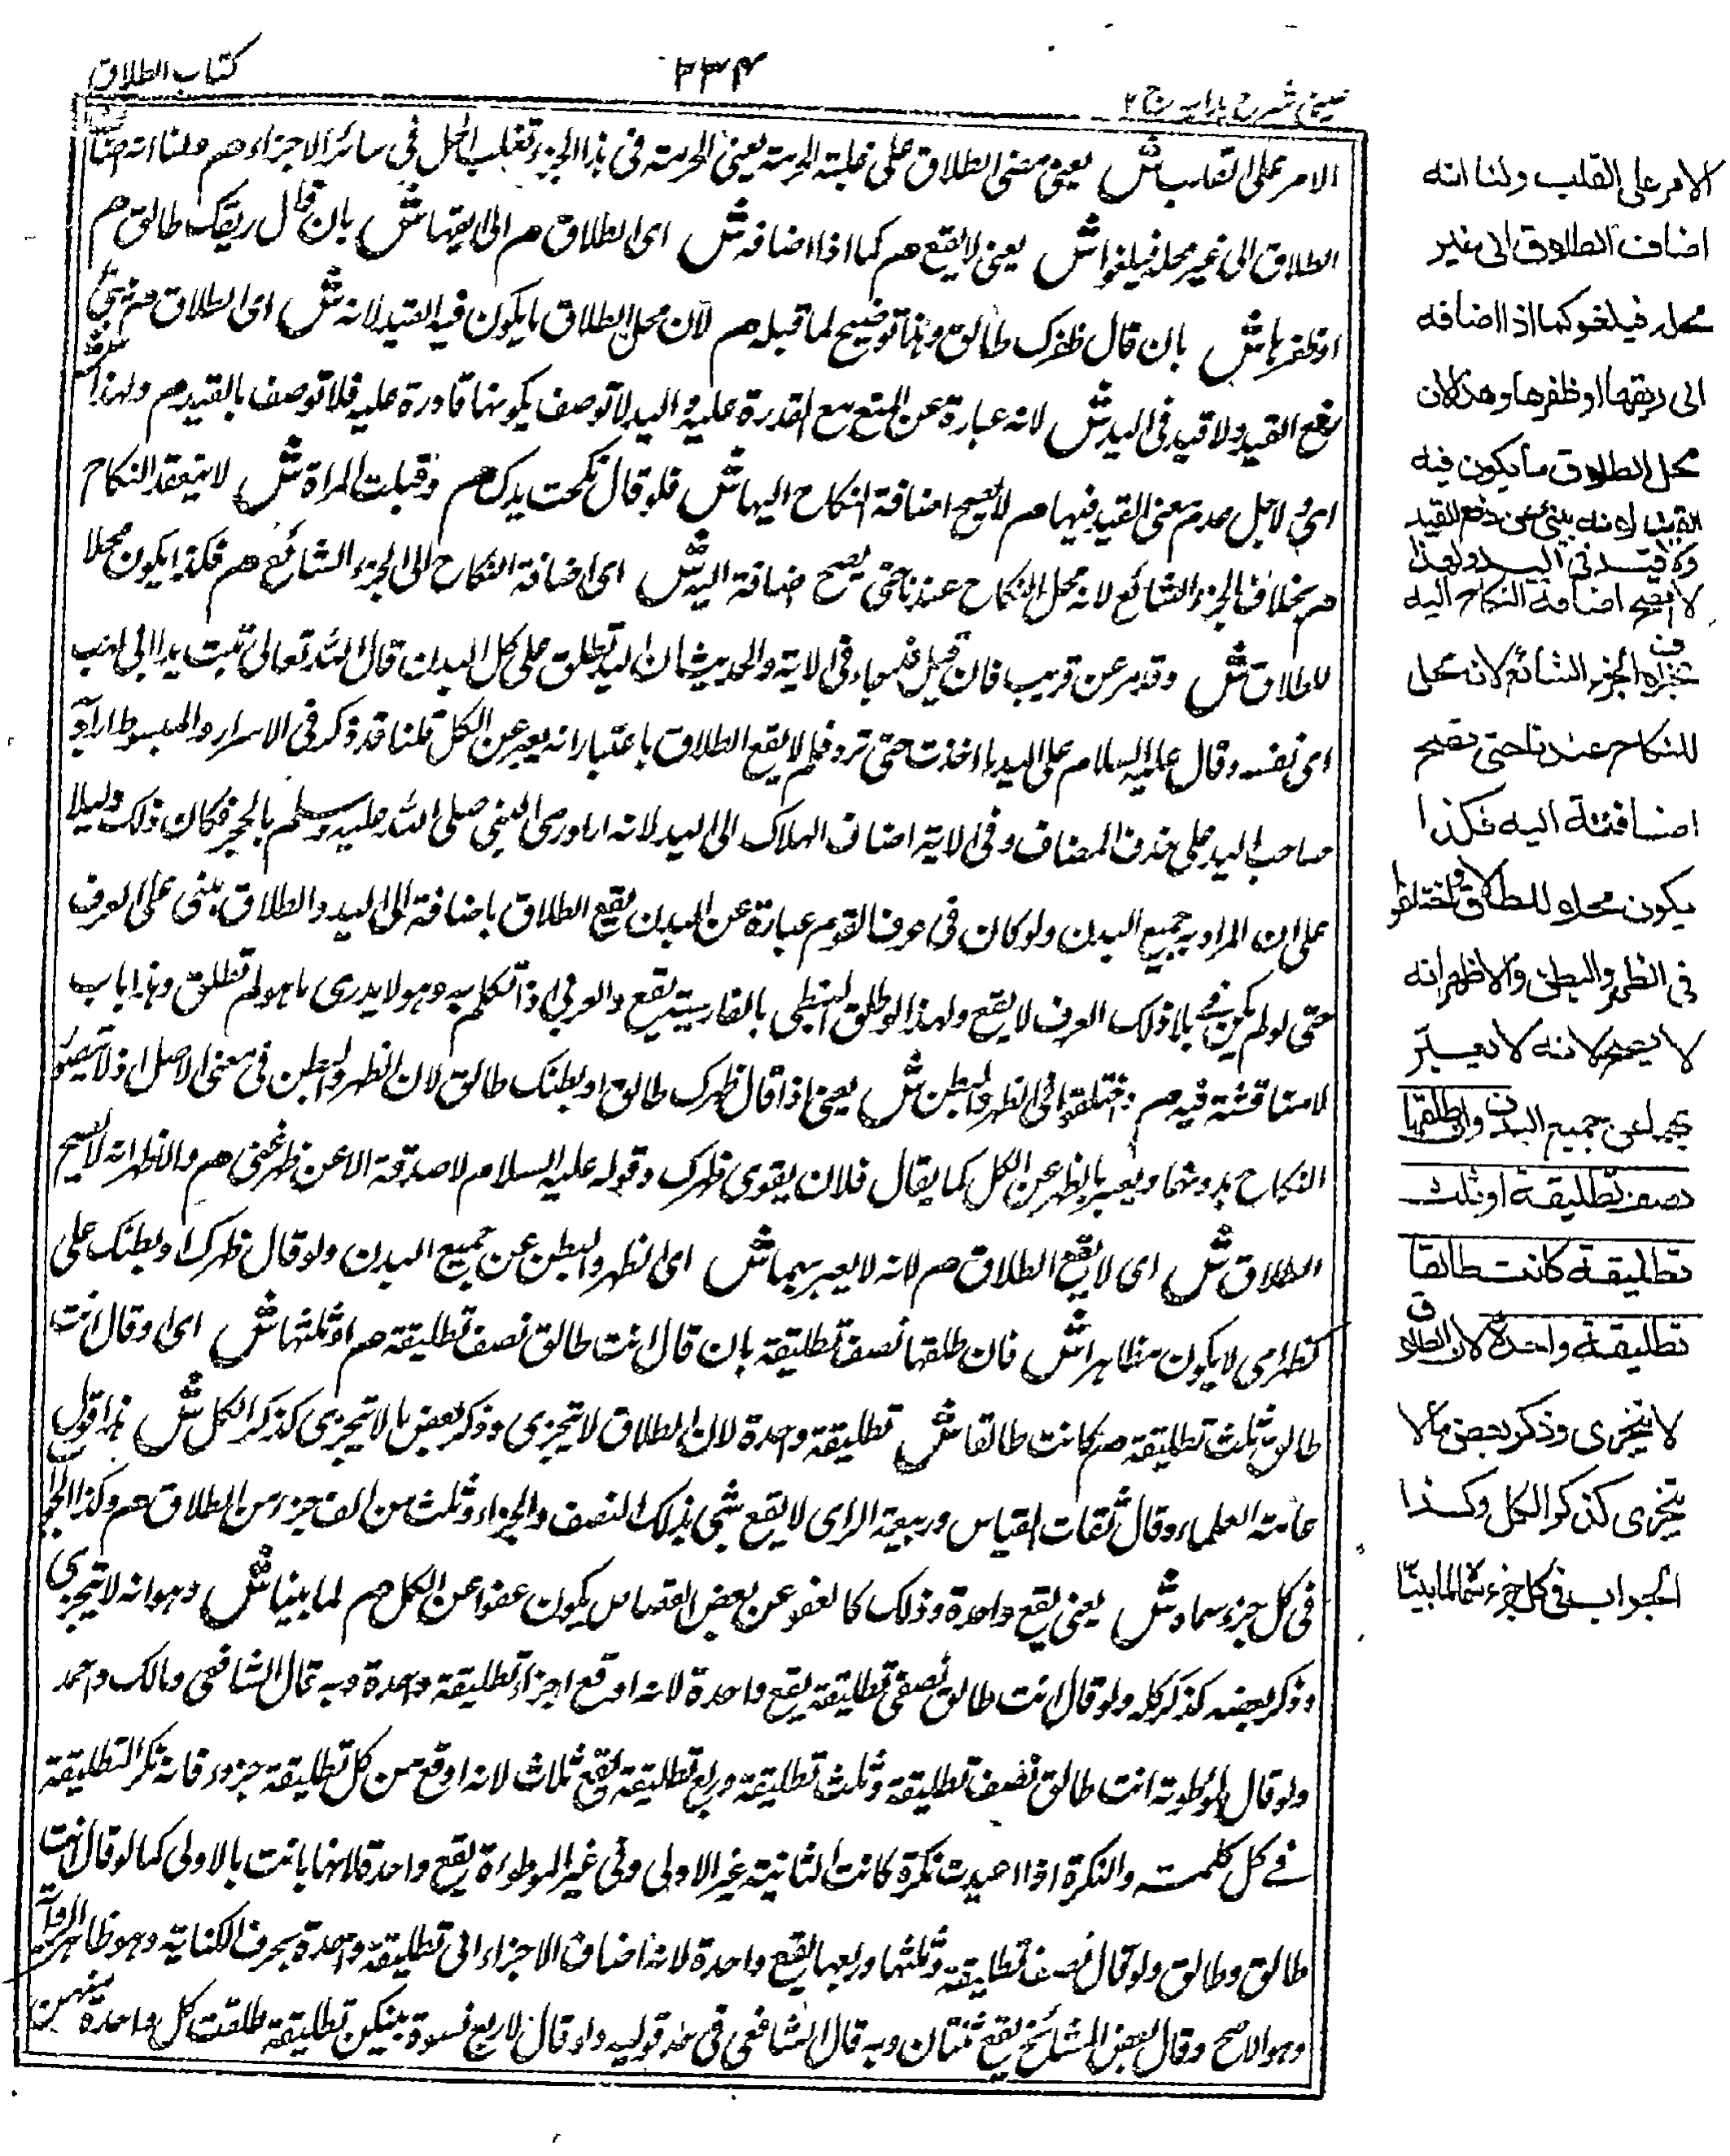 كتاب الطلاق
٤٣٣
عينى شرح هدايه ج ٢
الامر على القلب ش يعنى مضى الطلاق على غلبة الحرمة يعنى الحرمة فى هذا الجزء تغلب الحل فى سائر الاجزاء هم ولنا انه اضاف
الطلاق الى غير محله فيلغوا ش يعنى لا يقع هم كما اذا اضافه ش اى الطلاق هم الى ريقها ش بان قال ريقك طالق هم
او ظفرها ش بان قال ظفرك طالق وهذا توضيح لما قبله هم لان محل الطلاق ما يكون فيه القيد لانه ش اى الطلاق هم ينبئ عن
رفع القيد ولا قيد فى اليد ش لانه عبارة عن المنع مع القدرة عليه واليد لا توصف بكونها قادرة عليه فلا توصف بالقيد هم ولهذا ش
اى ولاجل عدم معنى القيد فيها هم لا يصح اضافة النكاح اليها ش فلو قال نكحت يدك هم وقبلت المراة ش لا ينعقد النكاح
هم بخلاف الجزء الشائع لانه محل النكاح عندنا حتى يصح اضافة اليه ش اى اضافة النكاح الى الجزء الشائع هم فكذا يكون محلا
للطلاق ش وقد مر عن قريب فان قيل قد جاء فى الاية والحديث ان اليد تطلق على كل البدن قال الله تعالى تبت يدا ابى لهب
اى نفسه وقال عليه السلام على اليد ما اخذت حتى ترد فلم لا يقع الطلاق باعتبار انه يعبر عن الكل قلنا قد ذكر فى الاسرار والمبسوط اراد به
صاحب اليد على حذف المضاف وفى الاية اضاف الهلاك الى اليد لانه اراد رمى النبى صلى الله عليه وسلم بالحجر فكان ذلك دليلا
على ان المراد به جميع البدن ولو كان فى عرف القوم عبارة عن البدن يقع الطلاق باضافة الى اليد والطلاق يبنى على العرف
حتى لو لم يكن فى بلاد ذلك العرف لا يقع ولهذا لو طلق النبطى بالفارسية يقع والعربى اذا تكلم به وهو لا يدرى ما هو لم تطلق وهذا باب
لا مناقشة فيه هم واختلفوا فى الظهر والبطن ش يعنى اذا قال ظهرك طالق او بطنك طالق لان الظهر والبطن فى معنى الاصل اذ لا يتصور
النكاح بدونهما ويعبر بالظهر عن الكل كما يقال فلان يقوى ظهرك وقوله عليه السلام لا صدقة الا عن ظهر غنى هم والاظهر انه لا يصح
الطلاق ش اى لا يقع الطلاق هم لانه لا يعبر بهما ش اى الظهر والبطن عن جميع البدن ولو قال ظهرك او بطنك على
كظهر امى لا يكون مظاهرا ش فان طلقها نصف تطليقة بان قال انت طالق نصف تطليقة هم او ثلثها ش اى او قال انت
طالق ثلث تطليقة هم كانت طالقا ش تطليقة واحدة لان الطلاق لا يتجزى وذكر بعض ما لا يتجزى كذكر الكل ش هذا قول
عامة العلماء وقال نفات القياس وربيعة الراى لا يقع شئ بذلك النصف والجزاء وثلث من الف جزء من الطلاق هم وكذا الجواب
فى كل جزء سماه ش يعنى يقع واحدة وذلك كالعفو عن بعض القصاص يكون عفوا عن الكل هم لما بينا ش وهو انه لا يتجزى
وذكر بعضه كذكر كله ولو قال انت طالق نصفى تطليقة يقع واحدة لانه اوقع اجزاء تطليقة واحدة وبه قال الشافعى ومالك واحمد
ولو قال لموطوئة انت طالق نصف تطليقة وثلث تطليقة وربع تطليقة يقع ثلاث لانه اوقع من كل تطليقة جزء وفانه نكر التطليقة
فى كل كلمة والنكرة اذا اعيدت نكرة كانت الثانية غير الاولى وفى غير الموطوءة يقع واحدة لانها بانت بالاولى كما لو قال انت
طالق وطالق ولو قال نصف تطليقة وثلثها وربعها يقع واحدة لانه اضاف الاجزاء الى تطليقة واحدة بحرف الكناية وهو ظاهر الرواية
وهو الاصح وقال بعض المشائخ يقع ثنتان وبه قال الشافعى فى احد قوليه ولو قال لاربع نسوة بينكن تطليقة طلقت كل واحدة منهن
الامر على القلب ولنا انه
اضاف الطلاق الى غير
محله فيلغو كما اذا اضافه
الى ريقها او ظفرها وهذا لان
محل الطلاق ما يكون فيه
القيد لانه ينبئ عن رفع القيد
ولا قيد فى اليد ولهذا
لا يصح اضافة النكاح اليه
بخلاف الجزء الشائع لانه محل
للنكاح عندنا حتى تصح
اضافته اليه فكذا
يكون محلا للطلاق واختلفوا
فى الظهر والبطن والاظهر انه
لا يصح لانه لا يعبر
بهما عن جميع البدن وان طلقها
نصف تطليقة او ثلث
تطليقة كانت طالقا
تطليقة واحدة لان الطلاق
لا يتجزى وذكر بعض ما لا
يتجزى كذكر الكل وكذا
الجواب فى كل جزء سماه لما بينا